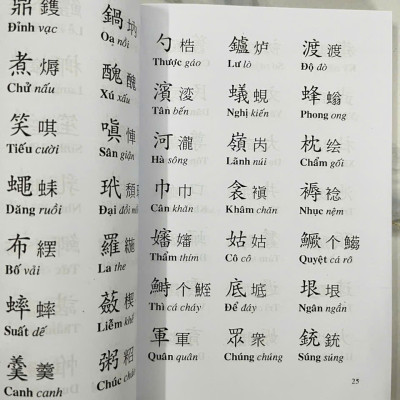 鼎鑊 鍋坳
Đỉnh vạc Oạ nồi
煮㶭 醜醜
Chử nấu Xú xấu
笑唭 嗔悼
Tiếu cười Sân giận
蠅蛛
Dăng ruồi Đại đồi mồi
布纙 羅𦀴
Bố vải La the
蟀蟀
Suất dế Liễm khế
羹羹 粥
Canh canh Chúc cháo
勺楛 鑪炉 渡渡
Thược gáo Lư lò Độ đò
濱 蟻蜆 蜂螉
Tân bến Nghị kiến Phong ong
河瀧 嶺㟁 枕
Hà sông Lãnh núi Chẩm gốt
巾巾 衾襀 褥稔
Cân khăn Khâm chăn Nhục nệm
嬸嬸 姑姑 鱖个鱺
Thẩm thím Cô cô Quyệt cá rô
鰣个鯹 底坻 垠垠
Thì cá cháy Để đáy Ngân ngần
軍軍 眾衆 銃銃
Quân quân Chúng chúng Súng súng
25